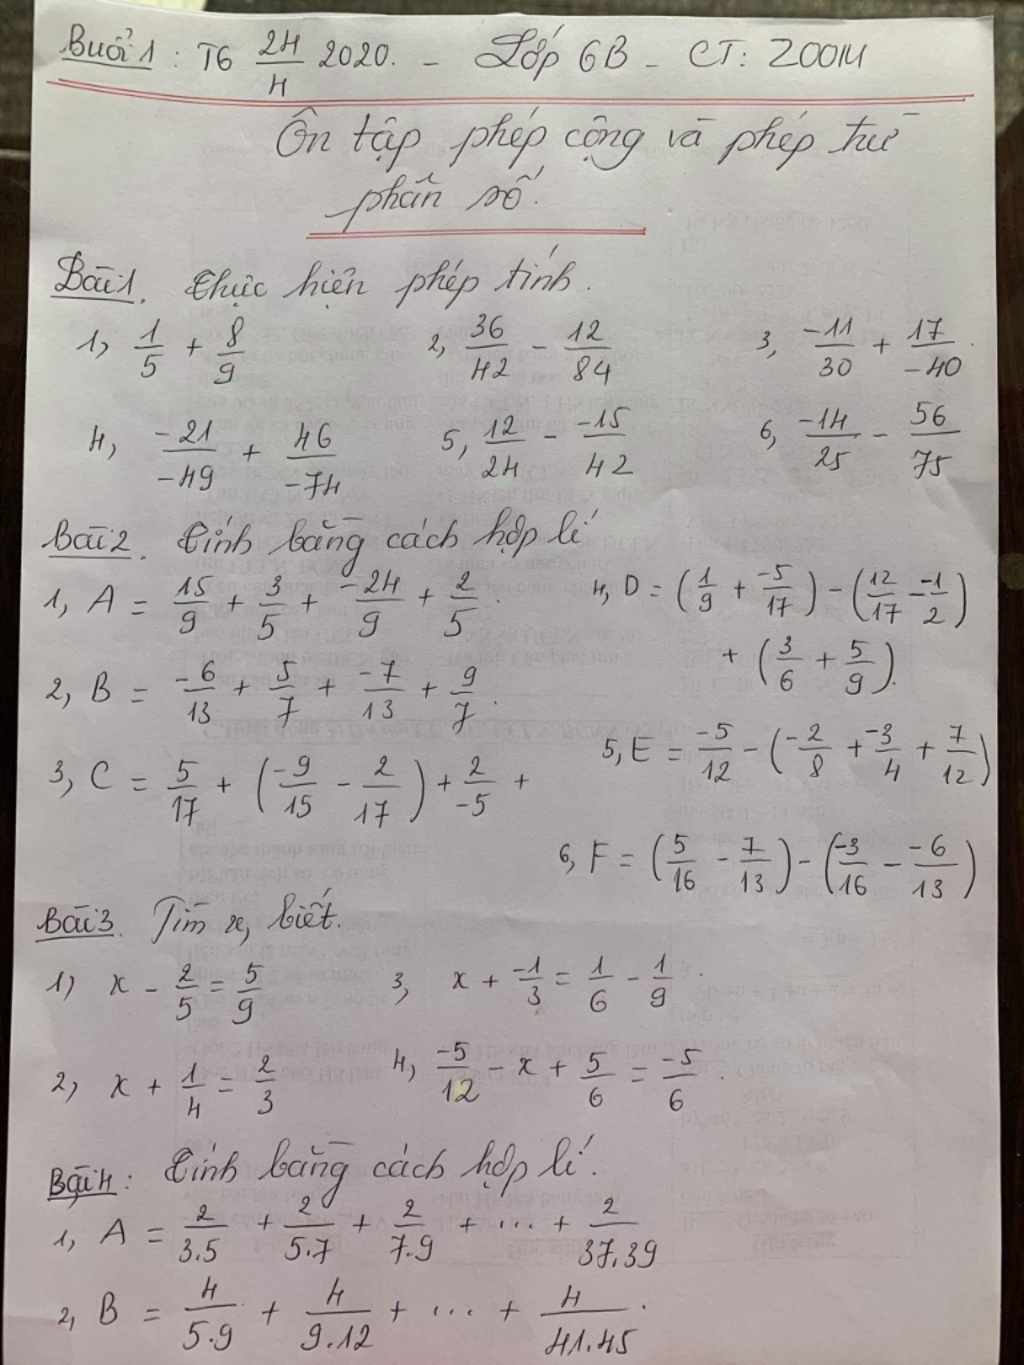 Buổi 1 : T6 24/4 2020. - Lớp 6B - CT: ZOOM
Ôn tập phép cộng và phép trừ
phân số.
Bài 1. Thực hiện phép tính.
1, 1/5 + 8/9 2, 36/42 - 12/84 3, -11/30 + 17/-40
4, -21/-49 + 46/-74 5, 12/24 - -15/42 6, -14/25 - 56/75
Bài 2. Tính bằng cách hợp lí
1, A = 15/9 + 3/5 + -24/9 + 2/5. 4, D = (1/9 + -5/17) - (12/17 - -1/2)
+ (3/6 + 5/9).
2, B = -6/13 + 5/7 + -7/13 + 9/7.
5, E = -5/12 - (-2/8 + -3/4 + 7/12)
3, C = 5/17 + (-9/15 - 2/17) + 2/-5 +
6, F = (5/16 - 7/13) - (-3/16 - -6/13)
Bài 3. Tìm x, biết.
1) x - 2/5 = 5/9 3, x + -1/3 = 1/6 - 1/9.
2, x + 1/4 = 2/3 4, -5/12 - x + 5/6 = -5/6.
Bài 4: Tính bằng cách hợp lí.
1, A = 2/3.5 + 2/5.7 + 2/7.9 + ... + 2/37.39
2, B = 4/5.9 + 4/9.12 + ... + 4/41.45.